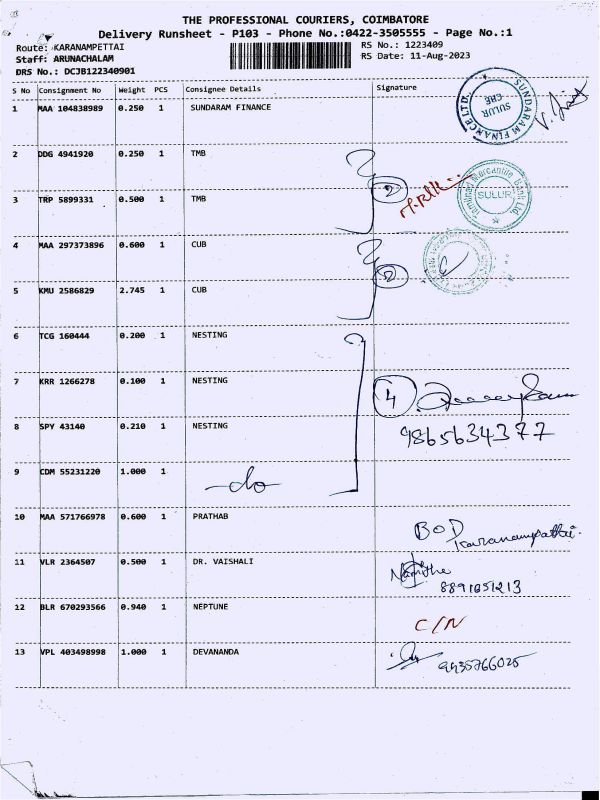 THE PROFESSIONAL COURIERS, COIMBATORE
Delivery Runsheet - P103 - Phone No.:0422-3505555 - Page No.:1
Route: KARANAMPETTAI RS No.: 1223409
Staff: ARUNACHALAM RS Date: 11-Aug-2023
DRS No.: DCJB122340901
S No Consignment No Weight PCS Consignee Details Signature
1 MAA 104838989 0.250 1 SUNDARAM FINANCE
SUNDARAM FINANCE LTD., SULUR CBE
2 DDG 4941920 0.250 1 TMB
2
Tamilnad Mercantile Bank Ltd. SULUR
3 TRP 5899331 0.500 1 TMB
4 MAA 297373896 0.600 1 CUB
2
5 KMU 2586829 2.745 1 CUB
6 TCG 160444 0.200 1 NESTING
7 KRR 1266278 0.100 1 NESTING
4
8 SPY 43140 0.210 1 NESTING
9865634377
9 CDM 55231220 1.000 1 -do
10 MAA 571766978 0.600 1 PRATHAB
BOD
Karanampattai.
11 VLR 2364507 0.500 1 DR. VAISHALI
8891651213
12 BLR 670293566 0.940 1 NEPTUNE
C/N
13 VPL 403498998 1.000 1 DEVANANDA